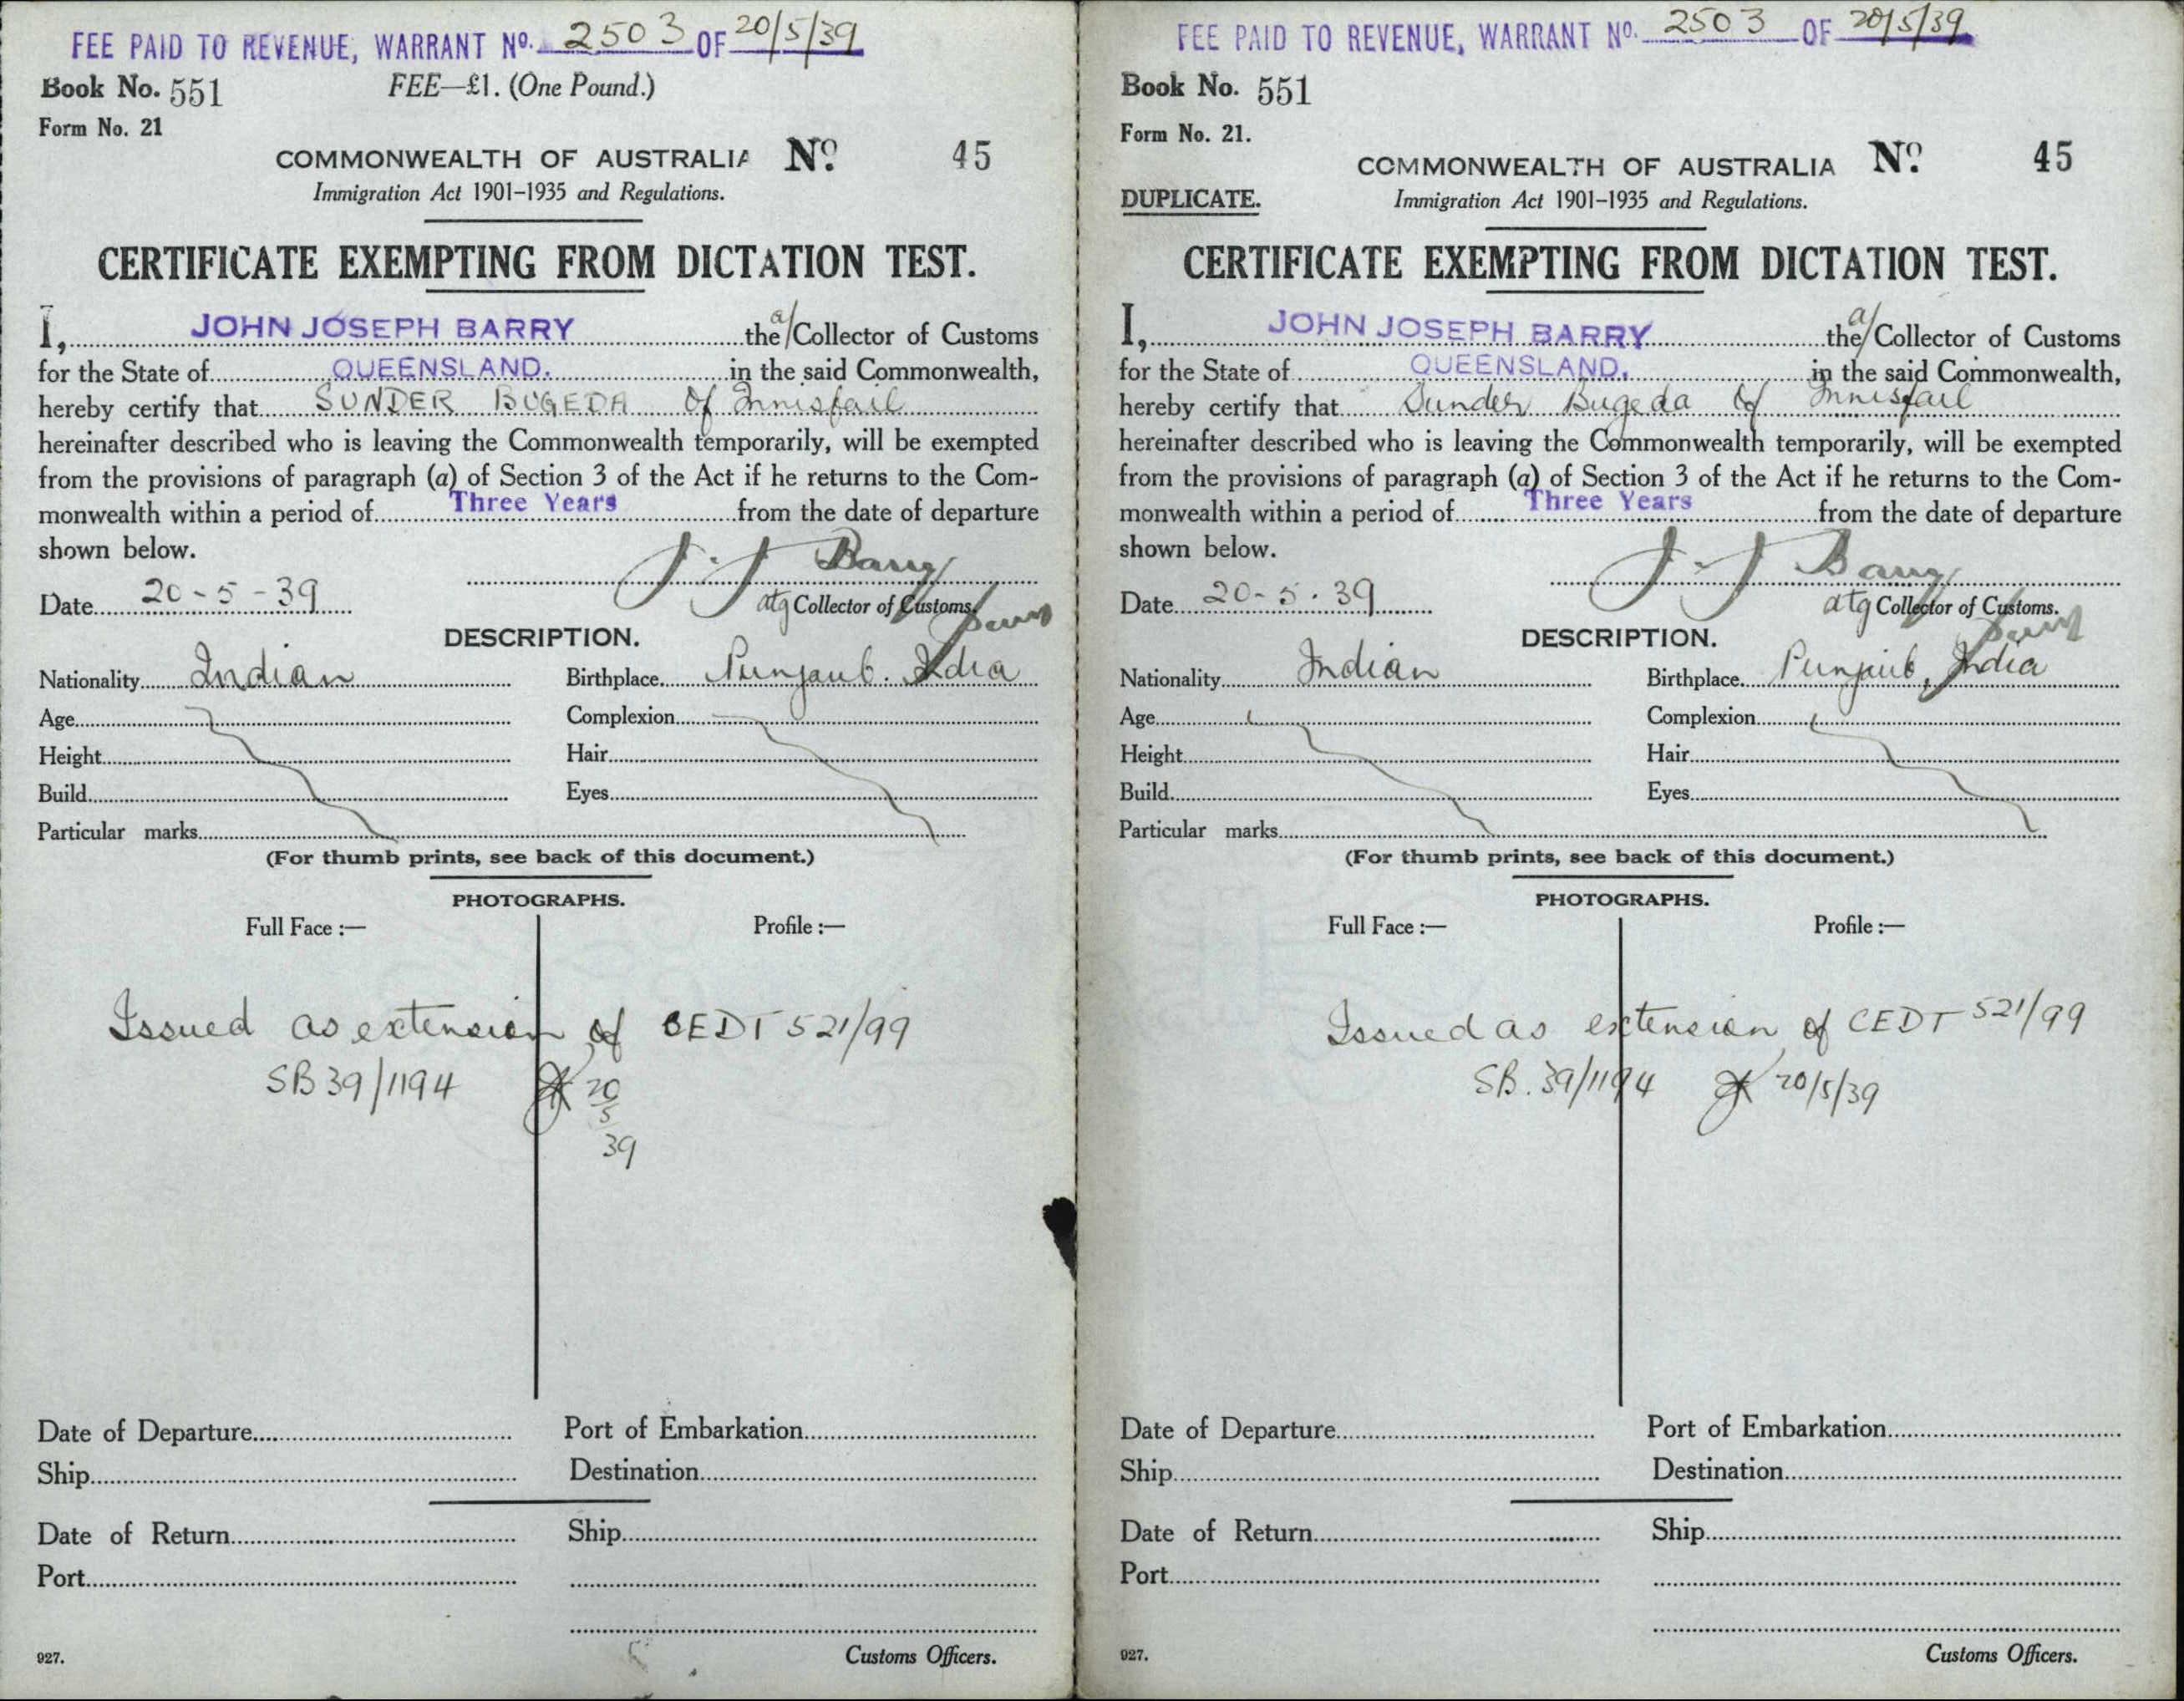 FEE PAID TO REVENUE, WARRANT No. 2503 OF 20/5/39
Book No. 551 FEE—£1. (One Pound.)
Form No. 21
COMMONWEALTH OF AUSTRALIA No. 45
Immigration Act 1901–1935 and Regulations.
CERTIFICATE EXEMPTING FROM DICTATION TEST.
I, JOHN JOSEPH BARRY the a/ Collector of Customs
for the State of QUEENSLAND. in the said Commonwealth,
hereby certify that SUNDER BUGEDA of Innisfail
hereinafter described who is leaving the Commonwealth temporarily, will be exempted
from the provisions of paragraph (a) of Section 3 of the Act if he returns to the Com-
monwealth within a period of Three Years from the date of departure
shown below.
J. J Barry
Date 20-5-39 atg Collector of Customs.
DESCRIPTION.
Nationality Indian Birthplace Punjaub. India
Age Complexion
Height Hair
Build Eyes
Particular marks
(For thumb prints, see back of this document.)
PHOTOGRAPHS.
Full Face :— Profile :—
Issued as extension of CEDT 521/99
SB 39/1194 20/5/39
Date of Departure Port of Embarkation
Ship Destination
Date of Return Ship
Port
927. Customs Officers.
FEE PAID TO REVENUE, WARRANT No. 2503 OF 20/5/39
Book No. 551
Form No. 21.
COMMONWEALTH OF AUSTRALIA No. 45
DUPLICATE. Immigration Act 1901–1935 and Regulations.
CERTIFICATE EXEMPTING FROM DICTATION TEST.
I, JOHN JOSEPH BARRY the a/ Collector of Customs
for the State of QUEENSLAND. in the said Commonwealth,
hereby certify that Sunder Bugeda of Innisfail
hereinafter described who is leaving the Commonwealth temporarily, will be exempted
from the provisions of paragraph (a) of Section 3 of the Act if he returns to the Com-
monwealth within a period of Three Years from the date of departure
shown below.
J. J Barry
Date 20-5-39 atg Collector of Customs.
DESCRIPTION.
Nationality Indian Birthplace Punjaub, India
Age Complexion
Height Hair
Build Eyes
Particular marks
(For thumb prints, see back of this document.)
PHOTOGRAPHS.
Full Face :— Profile :—
Issued as extension of CEDT 521/99
SB. 39/1194 20/5/39
Date of Departure Port of Embarkation
Ship Destination
Date of Return Ship
Port
927. Customs Officers.